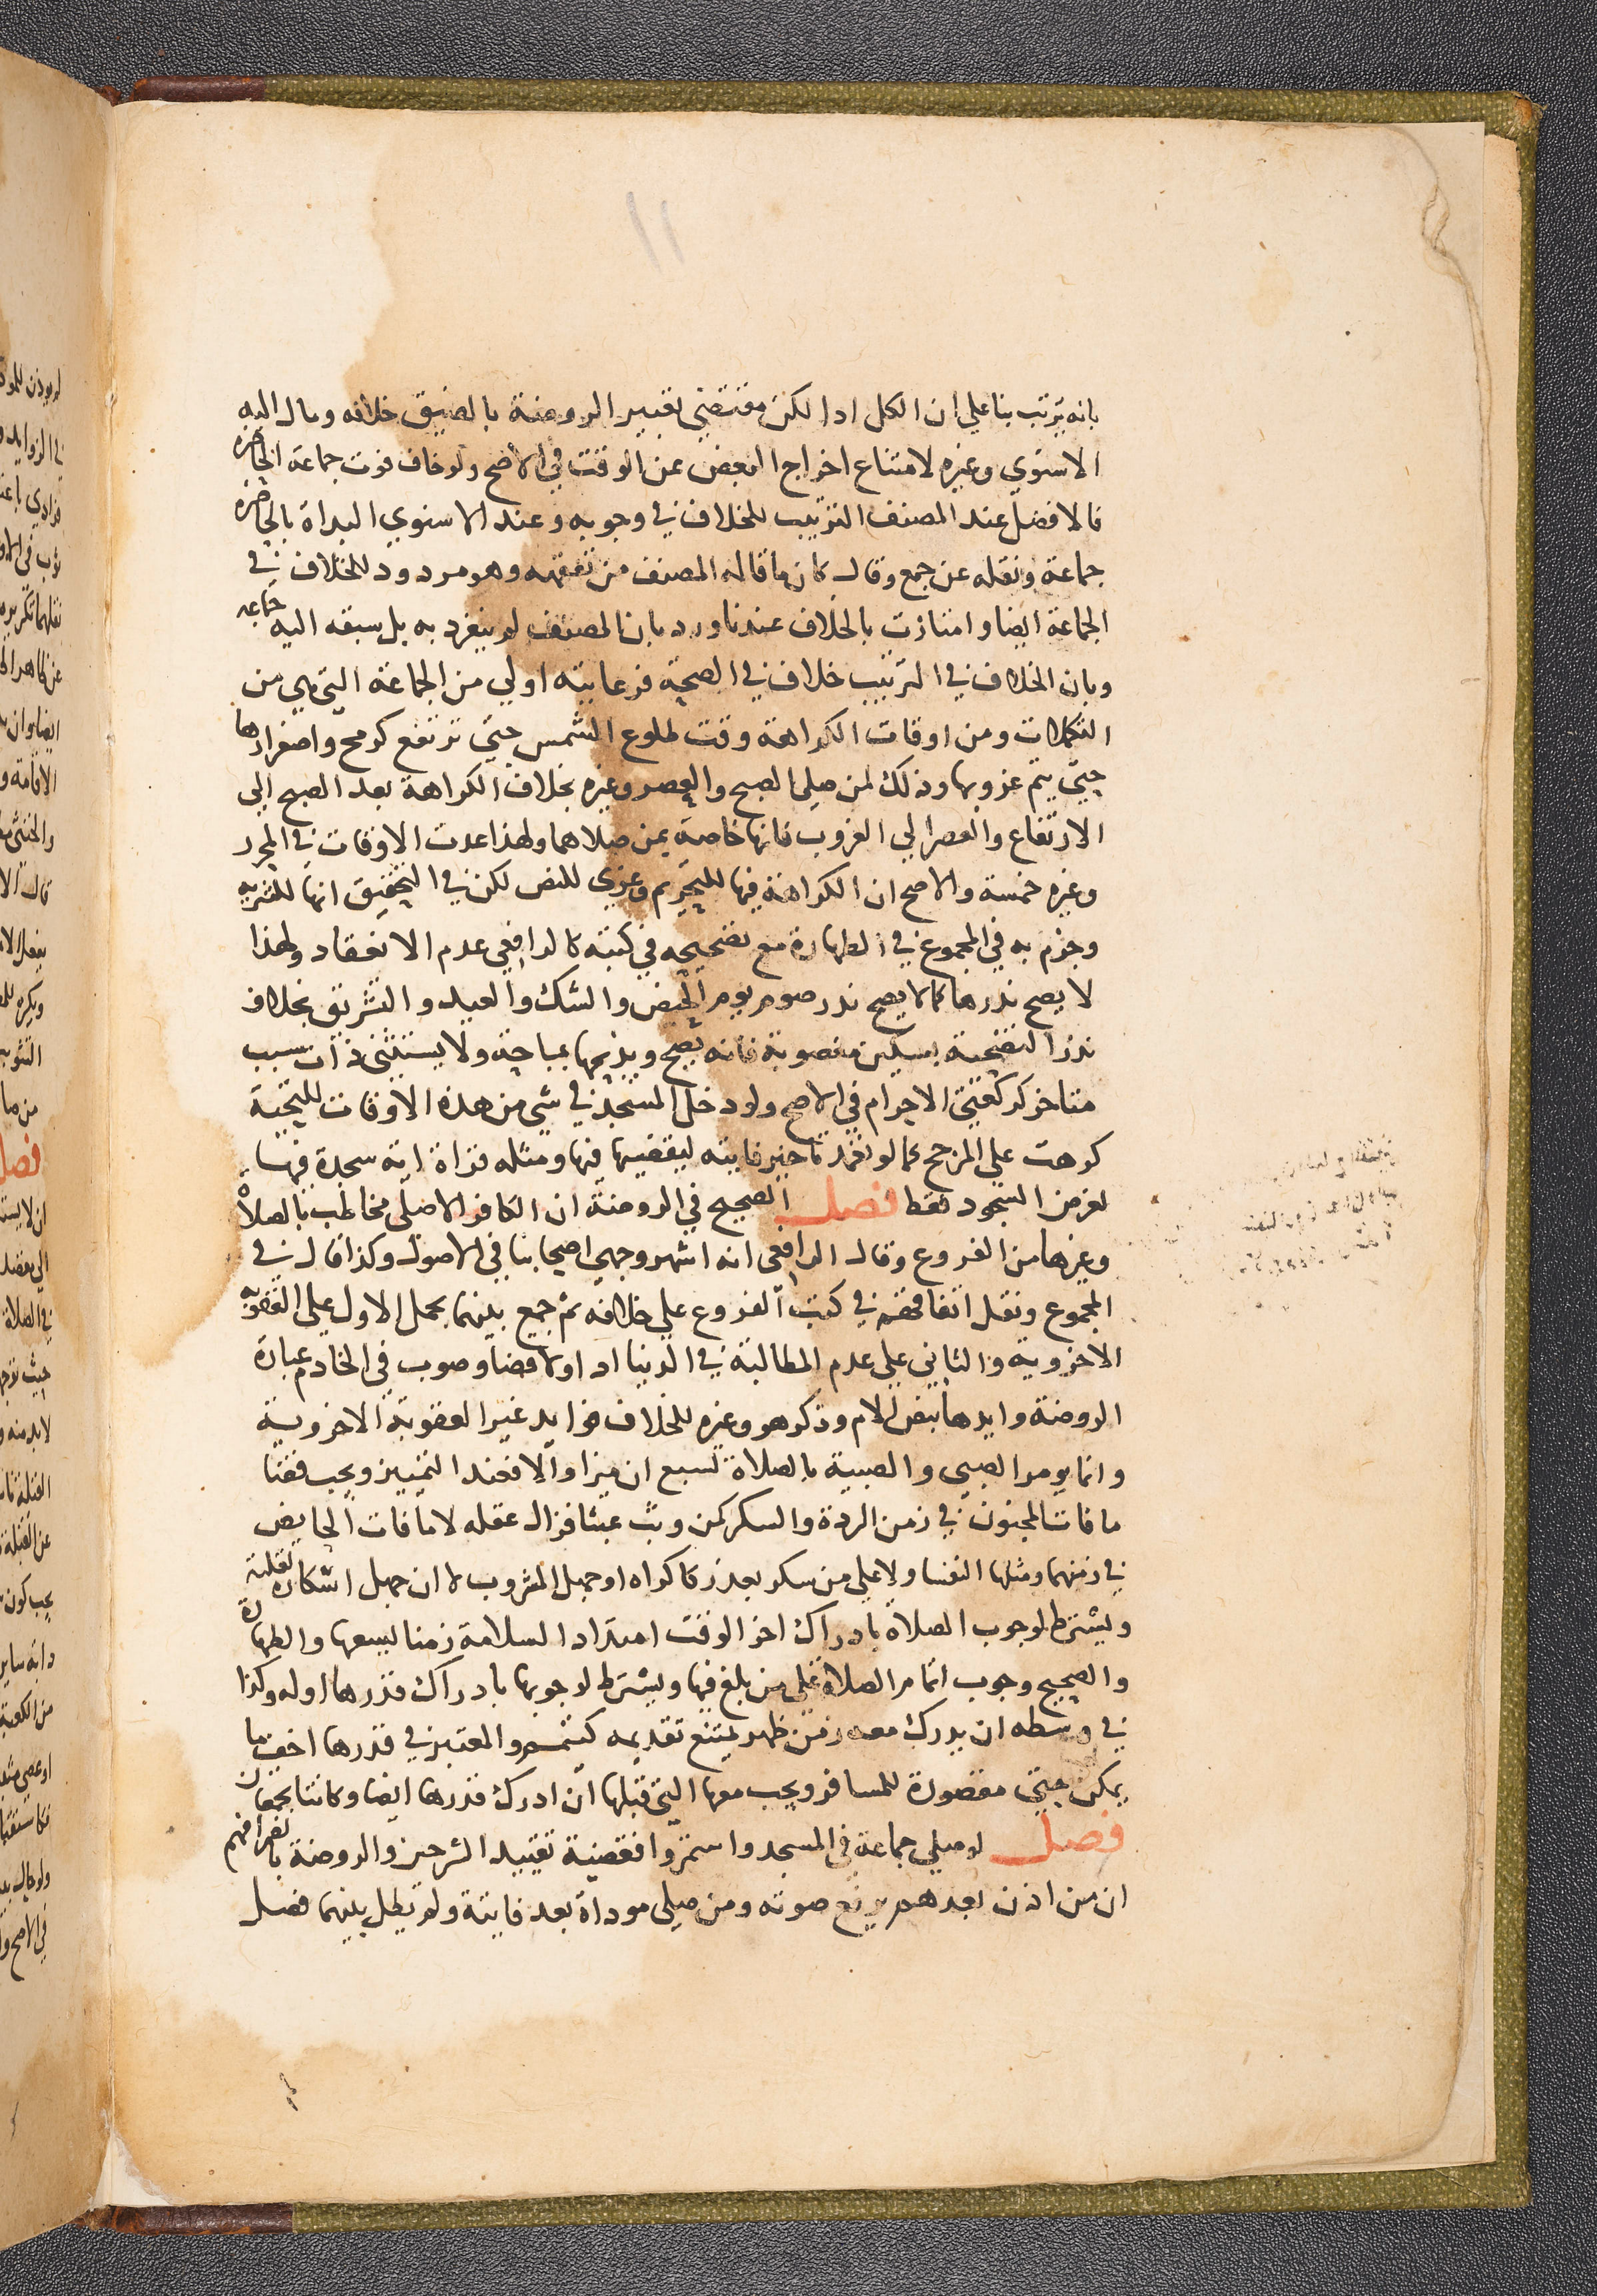 ١١
بانه يترتب بنا علي ان الكل ادا لكن مقتضي تعبير الروضة بالضيق خلافه ومال اليه
الاسنوي وغيره لامتناع اخراج البعض عن الوقت في الاصح ولو خاف فوت جماعة الحاضرة
فالافضل عند المصنف الترتيب للخلاف في وجوبه وعند الاسنوي البداة بالحاضرة
جماعة ونقله عن جمع وقال كان ما قاله المصنف من تفقهه وهو مردود للخلاف في
الجماعة ايضا وامتازت بالخلاف عندنا ورد بان المصنف لم ينفرد به بل سبقه اليه جماعه
وبان الخلاف في الترتيب خلاف في الصحة فرعايته اولي من الجماعة التي هي من
التكملات ومن اوقات الكراهة وقت طلوع الشمس حتي ترتفع كرمح واصفرارها
حتي يتم غروبها وذلك لمن صلي الصبح والعصر وغيره بخلاف الكراهة بعد الصبح الي
الارتفاع والعصر الي الغروب فانها خاصة بمن صلاهما ولهذا عدت الاوقات في المحرر
وغيره خمسة والاصح ان الكراهة فيها للتحريم وعزي للنص لكن في التحقيق انها للتنزيه
وجزم به في المجموع في الطهارة مع تصحيحه في كتبه كالرافعي عدم الانعقاد ولهذا
لا يصح نذرها كما لا يصح نذر صوم يوم الحيض والشك والعيد والتشريق بخلاف
نذر التضحية بسكين مغصوبة فانه يصح ويذبحها بمباحة ولا يستثني ذات سبب
متاخر كركعتي الاحرام في الاصح ولو دخل المسجد في شي من هذه الاوقات للتحية
كرهت علي المرجح كما لو تعمد تاخير فايته ليقضيها فيها ومثله قراة اية سجدة فيها
لغرض السجود فقط فصل الصحيح في الروضة ان الكافر الاصلي مخاطب بالصلاة
وغيرها من الفروع وقال الرافعي انه اشهر وجهي اصحابنا في الاصول وكذا قال في
المجموع ونقل اتفاقهم في كتب الفروع علي خلافه ثم جمع بينهما بحمل الاول علي العقوبه
الاخروية والثاني علي عدم المطالبة في الدنيا ادا ولا قضا وصوب في الخادم عبارة
الروضة وايدها بنص الام وذكر هو وغيره للخلاف فوايد غير العقوبة الاخروية
وانما يومر الصبي والصبية بالصلاة لسبع ان ميزا والا فعند التمييز ويجب قضا
ما فات المجنون في زمن الردة والسكر كمن وثب عبثا فزال عقله لا ما فات الحايض
في زمنهما ومثلها النفسا ولا علي من سكر بعذر كاكراه او جهل المشروب لا ان جهل اسكاره لقلته
ويشترط لوجوب الصلاة بادراك اخر الوقت امتداد السلامة زمنا يسعها والطهارة
والصحيح وجوب اتمام الصلاة علي من بلغ فيها ويشترط لوجوبها بادراك قدرها اوله وكذا
في وسطه ان يدرك معه زمن طهر يمتنع تقديمه كتيمم والمعتبر في قدرها اخف ما
يمكن حتي مقصورة للمسافر ويجب معها التي قبلها ان ادرك قدرها ايضا وكانتا يجمعان
فصل لو صلي جماعة في المسجد واستمروا فقضية تقييد الشرحين والروضة بانصرافهم
ان من اذن بعدهم يرفع صوته ومن صلي موداة بعد فايتة ولم يطل بينهما فصل